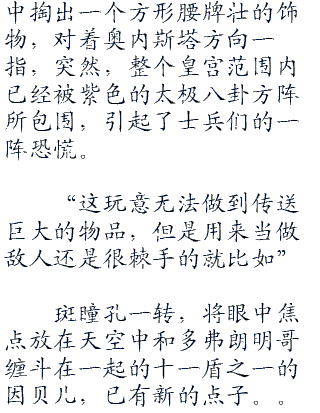 中掏出一个方形腰牌壮的饰
物，对着奥内斯塔方向一
指，突然，整个皇宫范围内
已经被紫色的太极八卦方阵
所包围，引起了士兵们的一
阵恐慌。
“这玩意无法做到传送
巨大的物品，但是用来当做
敌人还是很棘手的就比如”
斑瞳孔一转，将眼中焦
点放在天空中和多弗朗明哥
缠斗在一起的十一盾之一的
因贝儿，已有新的点子。。